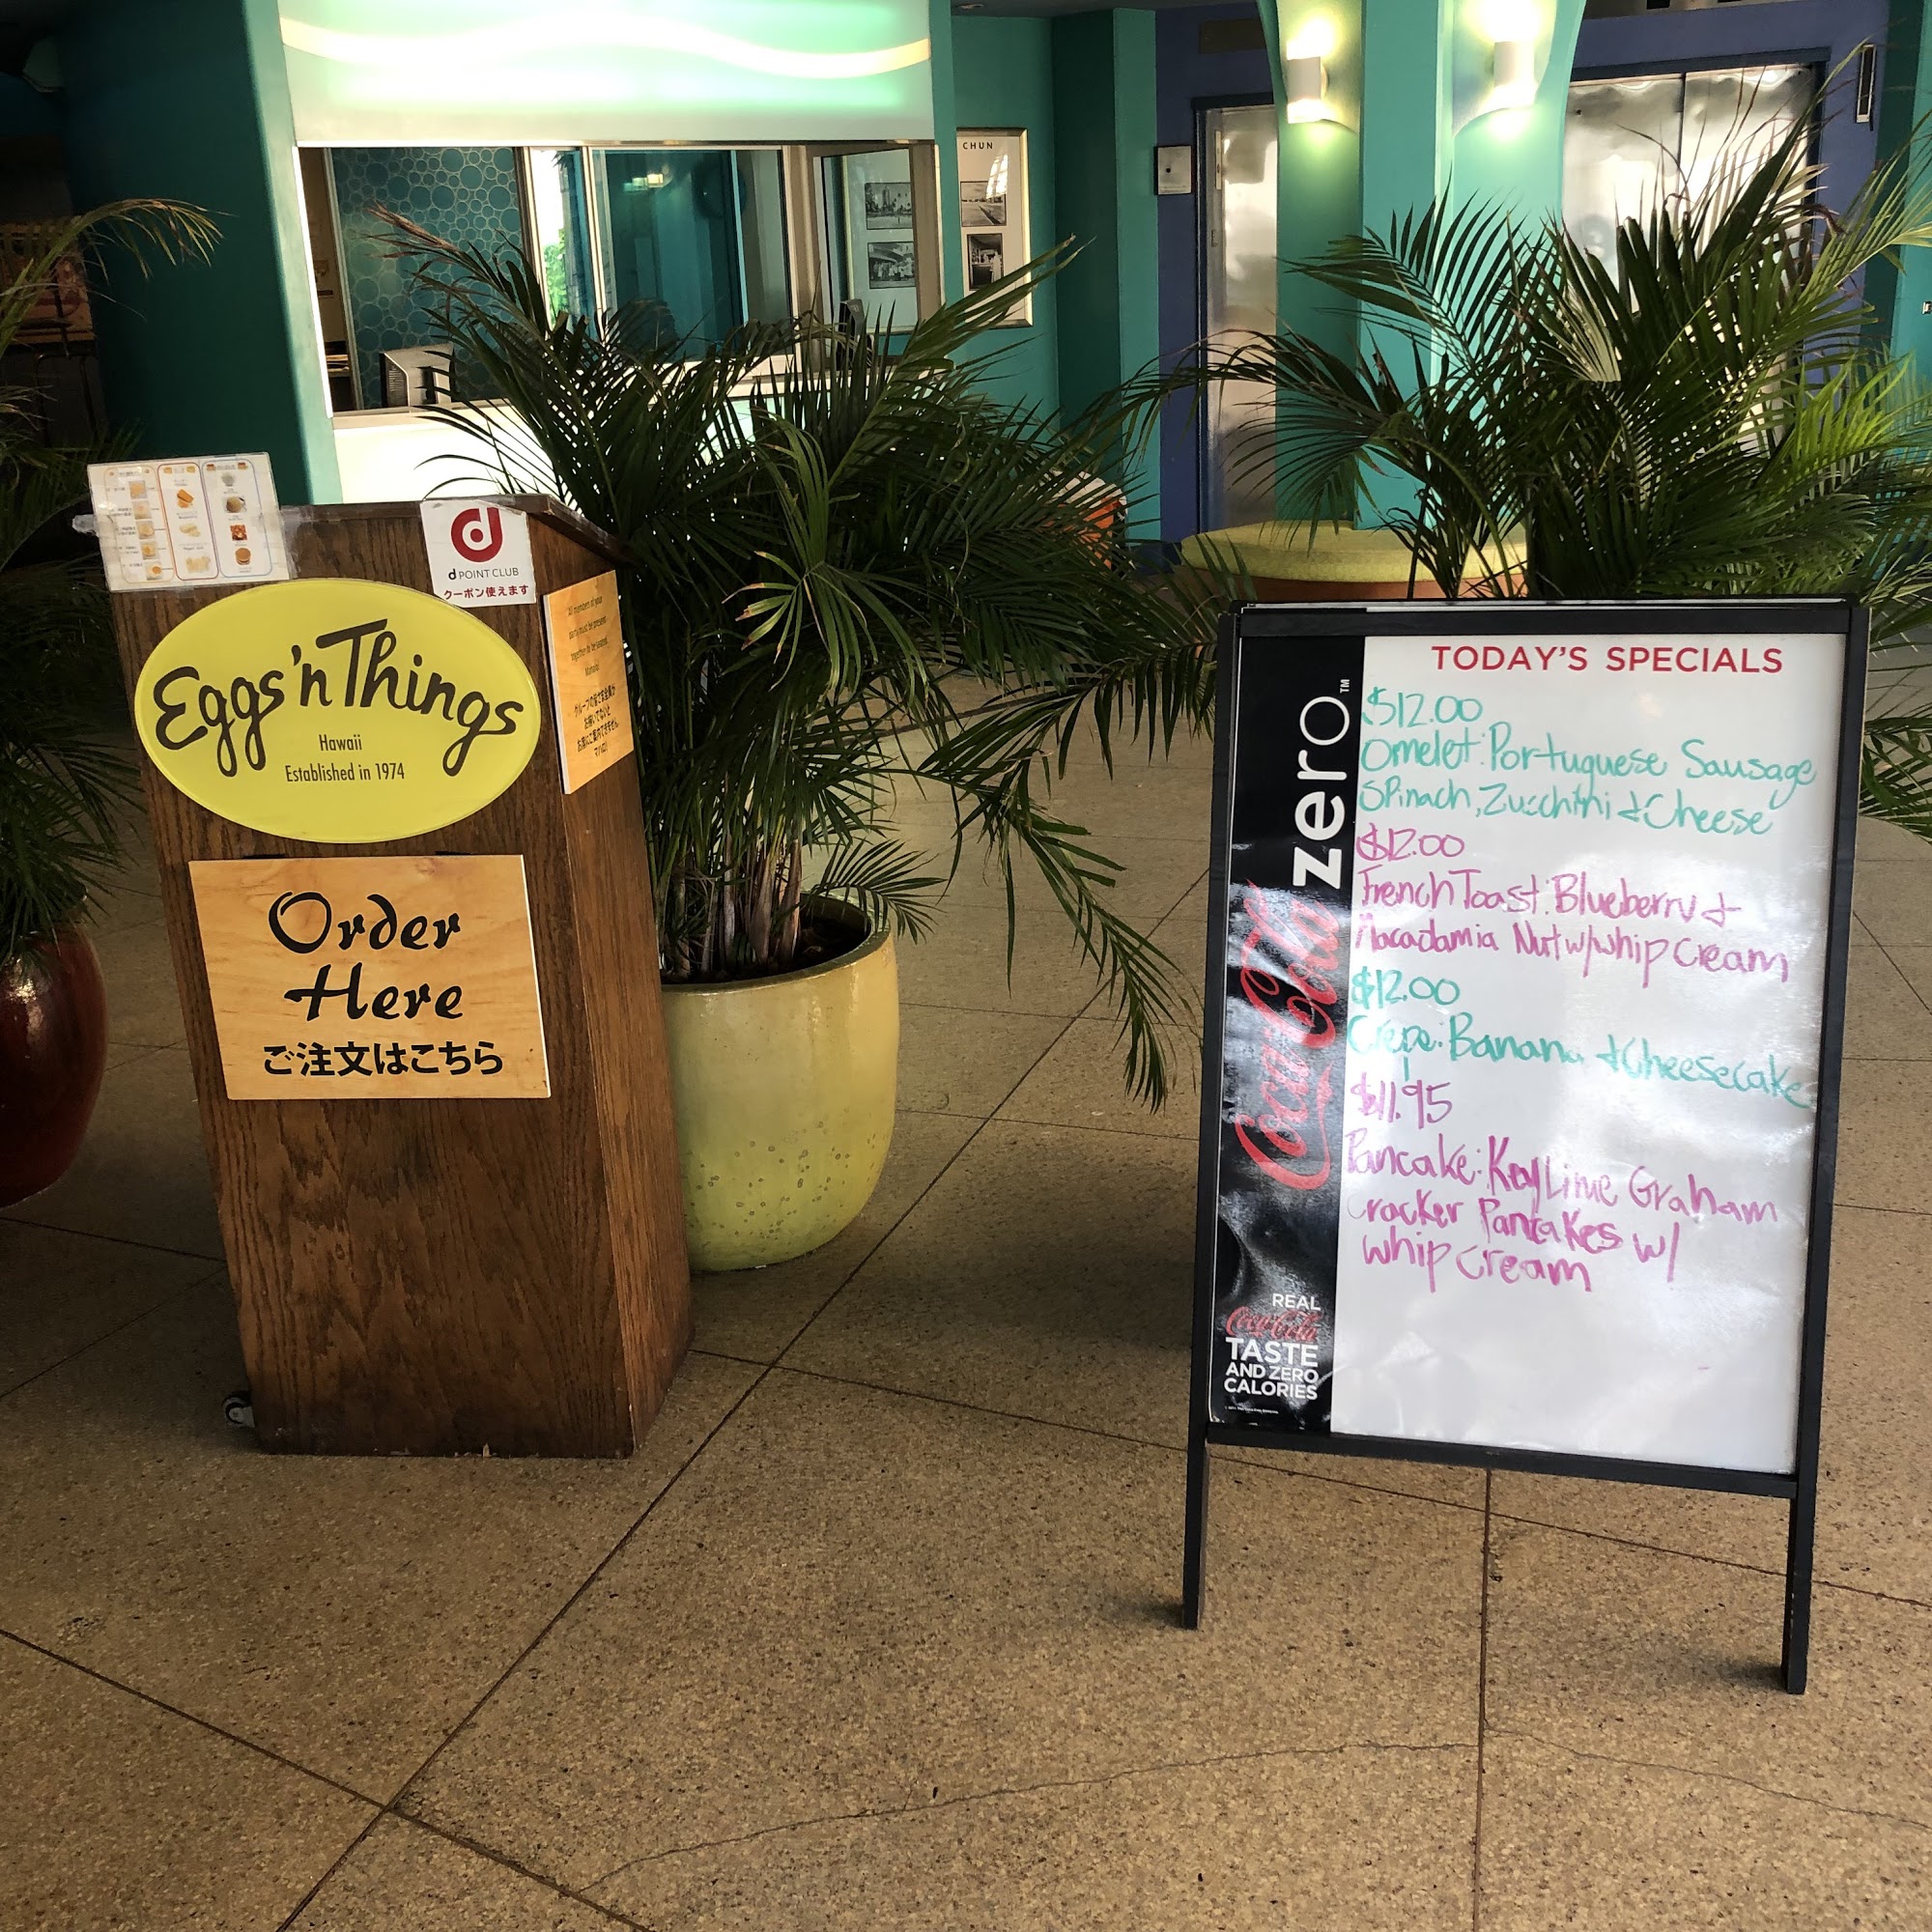 CHUN
d POINT CLUB
クーポン使えます
Eggs 'n Things
Hawaii
Established in 1974
All members of your
party must be present
together to be seated.
Mahalo!
Order
Here
ご注文はこちら
TODAY'S SPECIALS
$12.00
Omelet: Portuguese Sausage
Spinach, Zucchini & Cheese
$12.00
French Toast: Blueberry &
Macadamia Nut w/whip cream
$12.00
Crepe: Banana & Cheesecake
$11.95
Pancake: Key Lime Graham
cracker Pancakes w/
whip cream
Coca-Cola zero™
REAL
Coca-Cola
TASTE
AND ZERO
CALORIES